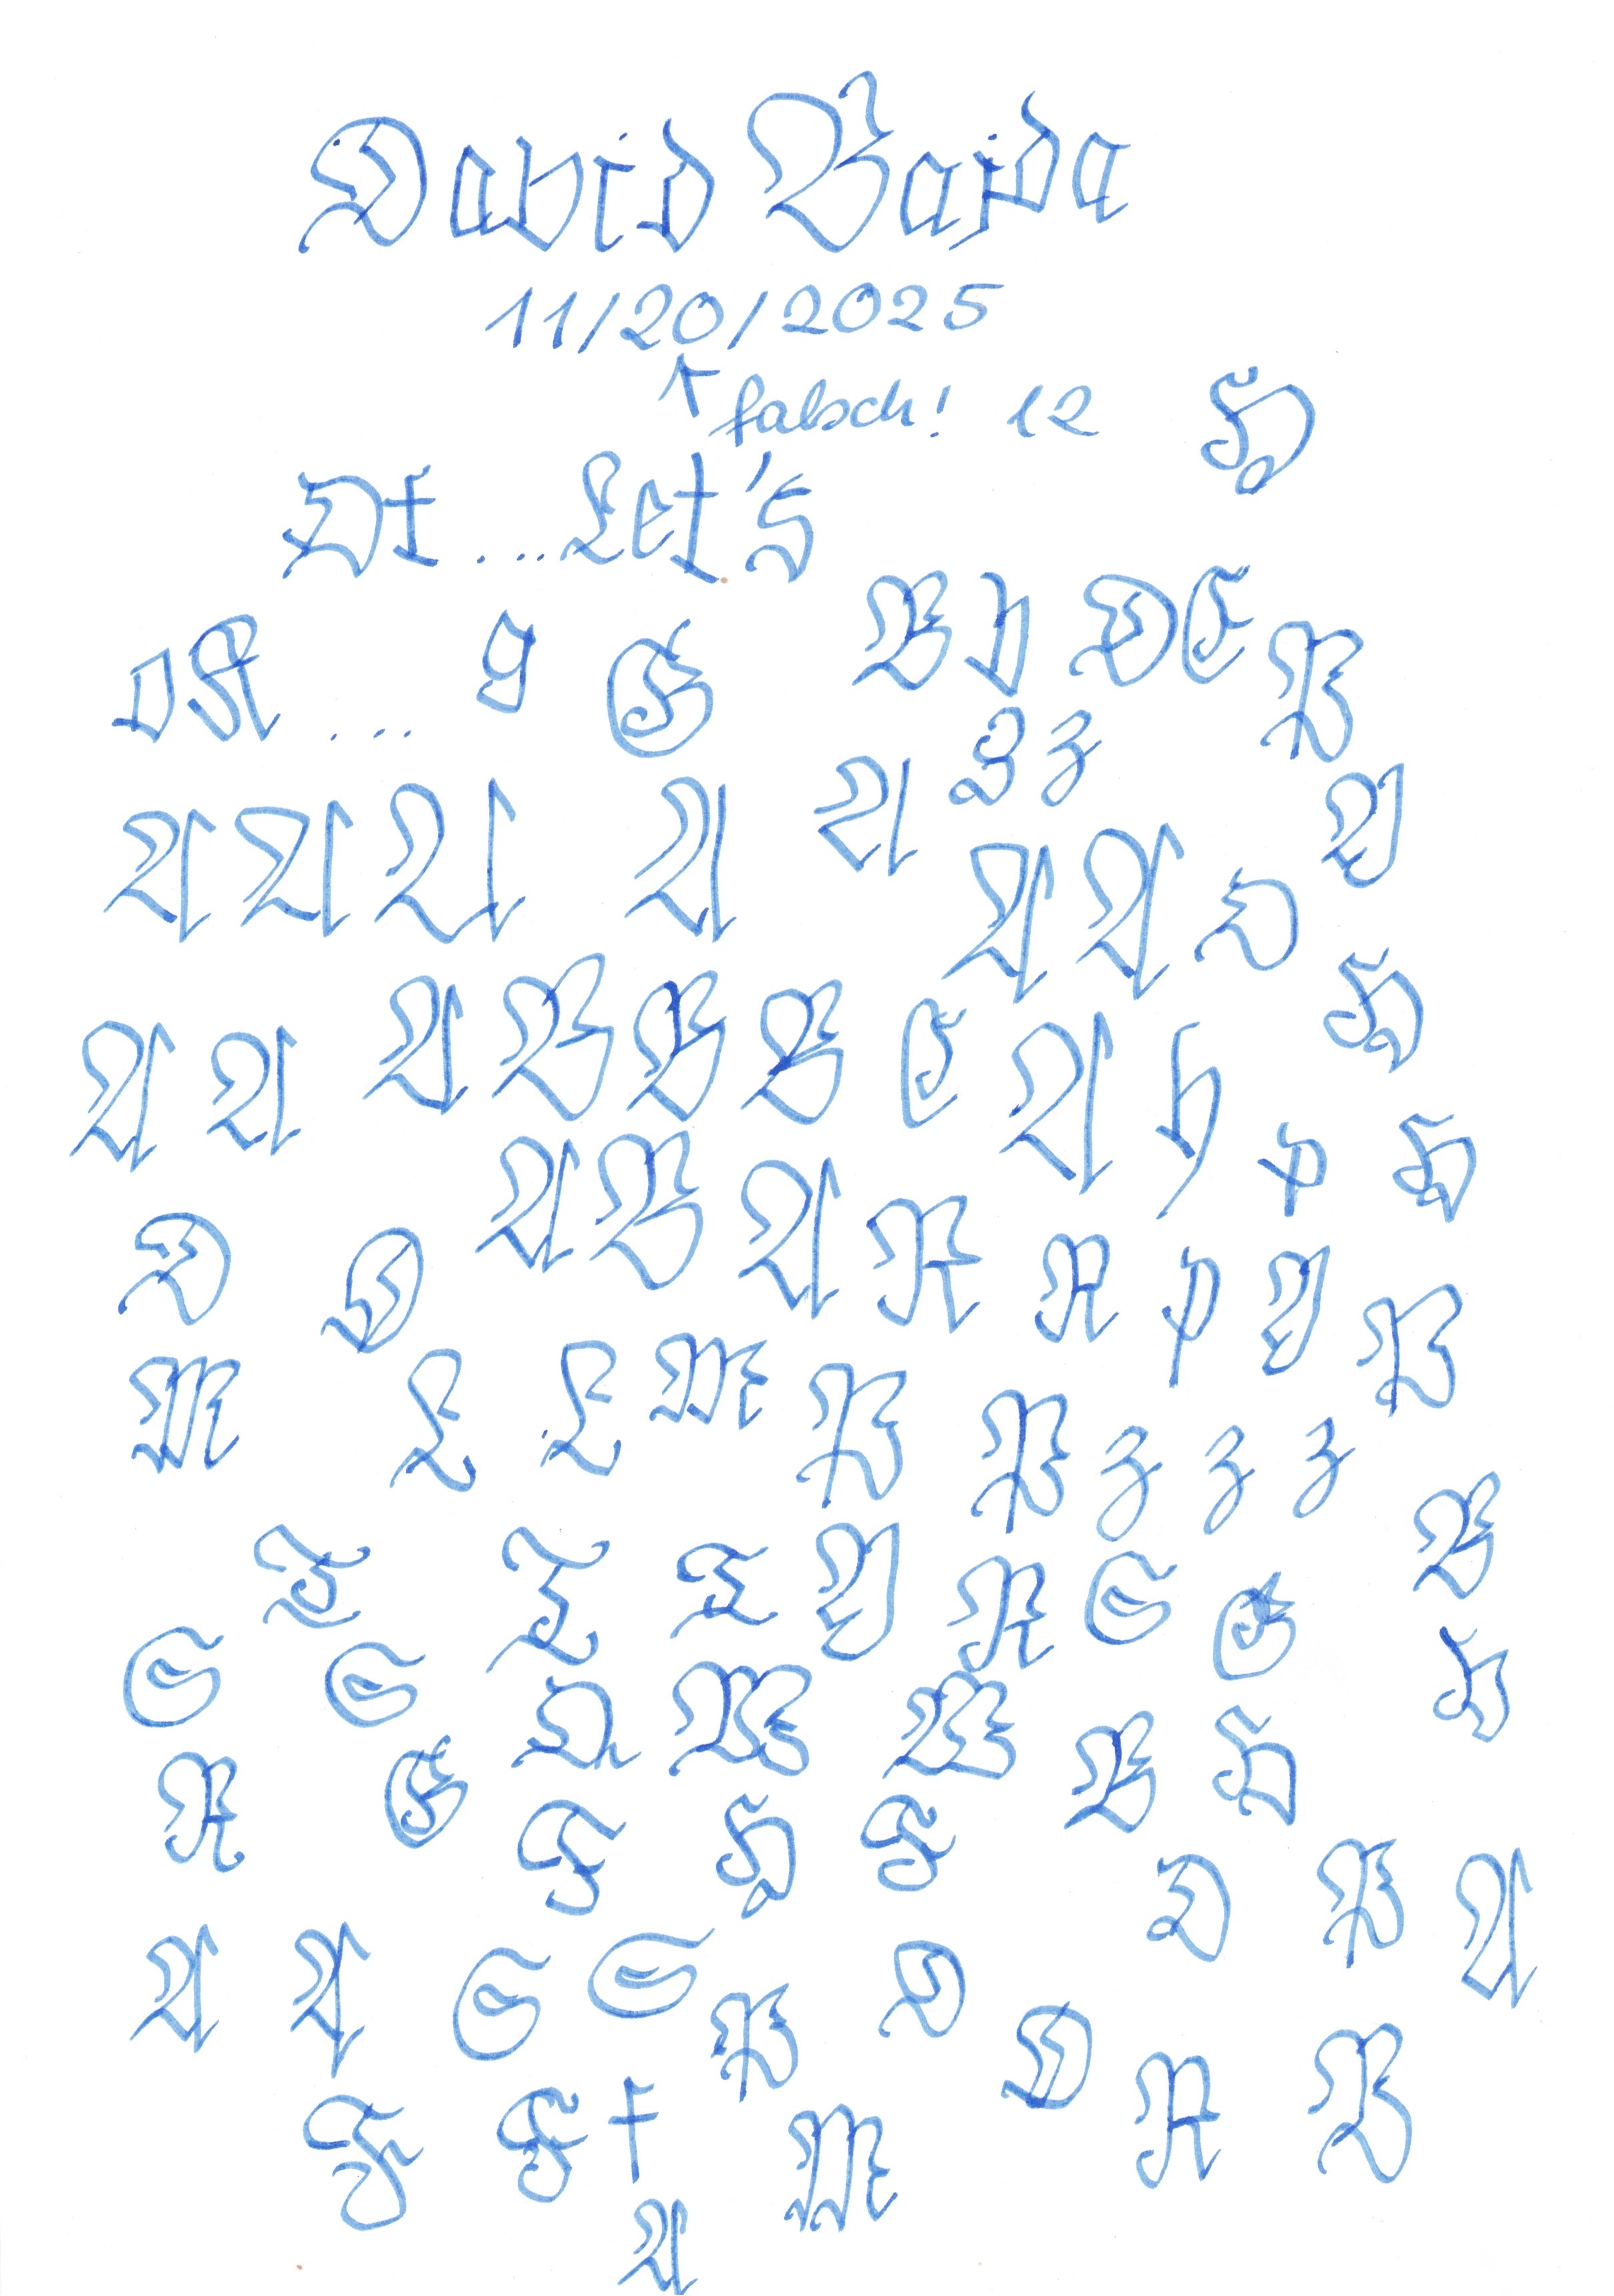 David Bajda
11/20/2025
falsch! 12 H
Dt ....Let's
B y D E
.... g G P
Z z
A A A A A Y
A A D
A A A B B B C A h H
A B A R p H
D D R p Y P
M L L M P P z z z
T T T Y R S G B
S S Q W W B H
R G F H F D P A
A A S S P D D R P
F F f M
A